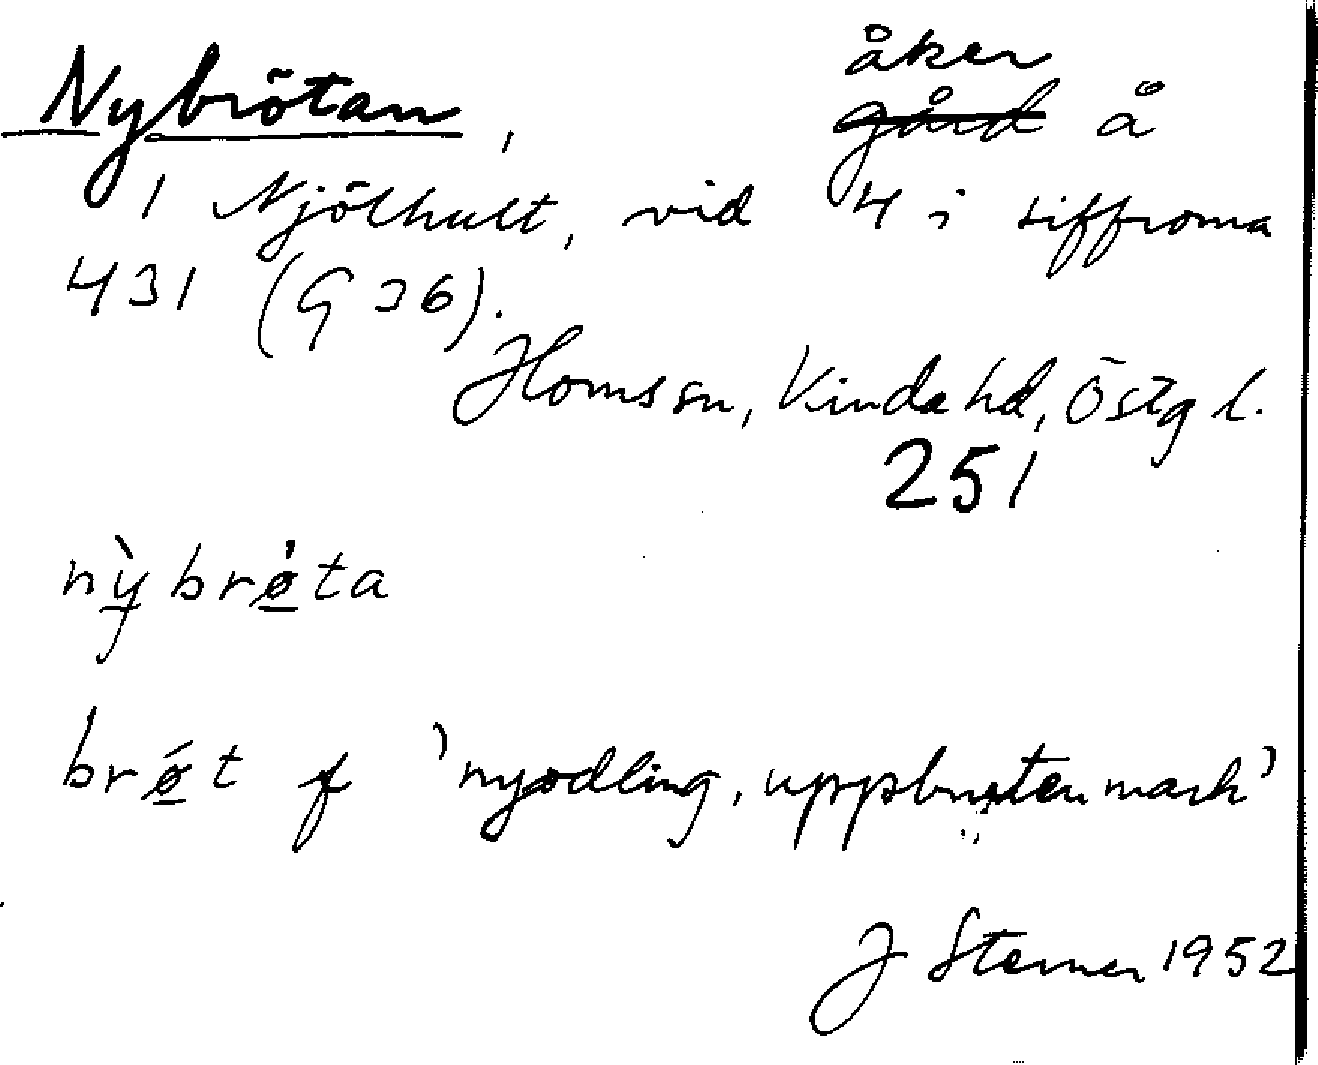 Nybrötan, åker
gård å
1 Njölhult, vid 4 i siffrorna
431 (G 36).
Horns sn, Kinda hd, Östg l.
251
nỳbrǿta
brǿt f 'nyodling, uppbruten mark'
J Sterner 1952